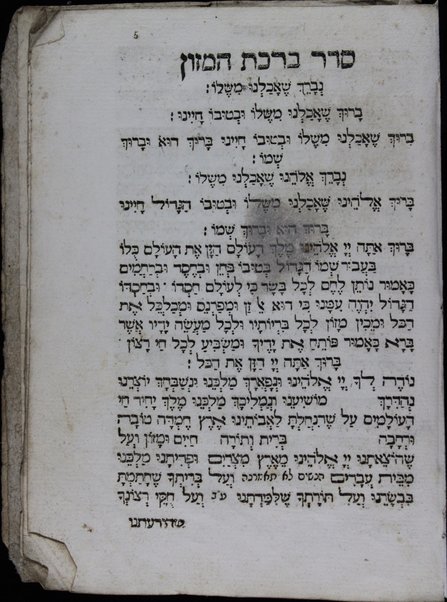 5
סדר ברכת המזון
נְבָרֵךְ שֶׁאָכַלְנוּ מִשֶּׁלוֹ:
בָּרוּךְ שֶׁאָכַלְנוּ מִשֶּׁלוֹ וּבְטִיבוֹ חָיִינוּ:
בָּרוּךְ שֶׁאָכַלְנוּ מִשֶּׁלוֹ וּבְטִיבוֹ חָיִינוּ בָּרוּךְ הוּא וּבָרוּךְ
שְׁמוֹ:
נְבָרֵךְ אֱלֹהֵינוּ שֶׁאָכַלְנוּ מִשֶּׁלוֹ:
בָּרוּךְ אֱלֹהֵינוּ שֶׁאָכַלְנוּ מִשֶּׁלוֹ וּבְטִיבוֹ הַגָּדוֹל חָיִינוּ
בָּרוּךְ הוּא וּבָרוּךְ שְׁמוֹ:
בָּרוּךְ אַתָּה יְיָ אֱלֹהֵינוּ מֶלֶךְ הָעוֹלָם הַזָּן אֶת הָעוֹלָם כֻּלּוֹ
בַּעֲבוּר שְׁמוֹ הַגָּדוֹל בְּטִיבוֹ בְּחֵן וּבְחֶסֶד וּבְרַחֲמִים
כָּאָמוּר נוֹתֵן לֶחֶם לְכָל בָּשָׂר כִּי לְעוֹלָם חַסְדּוֹ וּבְחַסְדּוֹ
הַגָּדוֹל יִהְיֶה עִמָּנוּ כִּי הוּא זָן וּמְפַרְנֵס וּמְכַלְכֵּל אֶת
הַכֹּל וּמֵכִין מָזוֹן לְכָל בְּרִיּוֹתָיו וּלְכָל מַעֲשֵׂה יָדָיו אֲשֶׁר
בָּרָא כָּאָמוּר פּוֹתֵחַ אֶת יָדֶיךָ וּמַשְׂבִּיעַ לְכָל חַי רָצוֹן
בָּרוּךְ אַתָּה יְיָ הַזָּן אֶת הַכֹּל:
נוֹדֶה לְּךָ יְיָ אֱלֹהֵינוּ וּנְפָאֶרְךָ מַלְכֵּנוּ יוֹצְרֵנוּ
נְהַדֶּרְךָ מוֹשִׁיעֵנוּ וְנַמְלִיכְךָ מַלְכֵּנוּ מֶלֶךְ יָחִיד חַי
הָעוֹלָמִים עַל שֶׁהִנְחַלְתָּ לַאֲבוֹתֵינוּ אֶרֶץ חֶמְדָּה טוֹבָה
וּרְחָבָה בְּרִית וְתוֹרָה חַיִּים וּמָזוֹן וְעַל
שֶׁהוֹצֵאתָנוּ יְיָ אֱלֹהֵינוּ מֵאֶרֶץ מִצְרַיִם וּפְדִיתָנוּ מַלְכֵּנוּ
מִבֵּית עֲבָדִים הנשים לא תאמרנה וְעַל בְּרִיתְךָ שֶׁחָתַמְתָּ
בִּבְשָׂרֵנוּ וְעַל תּוֹרָתְךָ שֶׁלִּמַּדְתָּנוּ ע"כ וְעַל חֻקֵּי רְצוֹנְךָ
שהודעתנו